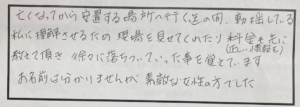 亡くなってから安置する場所へ行く迄の間、動揺している
私に理解させるため現場を見せてくれたり料金を先に
(近しい情報を)
教えて頂き徐々に落ちついていった事を覚えています
お名前は分かりませんが素敵な女性の方でした